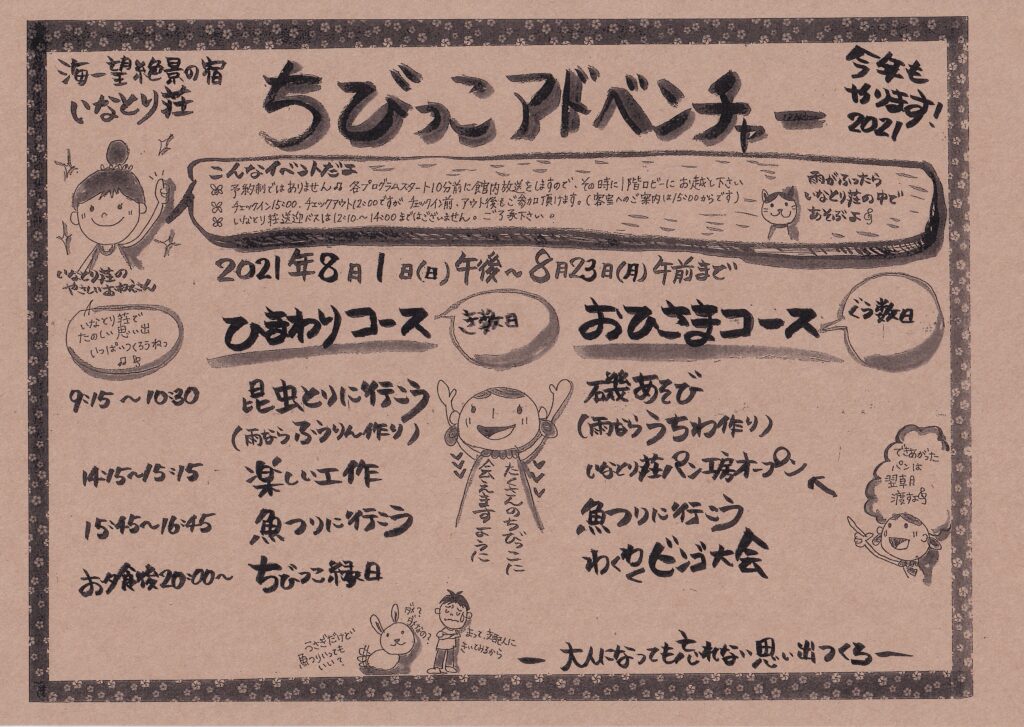 海一望絶景の宿
いなとり荘
ちびっこアドベンチャー
今年も
やります!
2021
こんなイベントだよ
予約制ではありません♫ 各プログラムスタート10分前に館内放送をしますので、その時に1階ロビーにお越し下さい
チェックイン15:00、チェックアウト12:00ですがチェックイン前、アウト後もご参加頂けます。(客室へのご案内は15:00からです)
いなとり荘送迎バスは12:10～14:00まではございません。ご了承下さい。
雨がふったら
いなとり荘の中で
あそぶよ♪
いなとり荘の
やさしいおねえさん
2021年8月1日(日)午後～8月23日(月)午前まで
いなとり荘で
たのしい思い出
いっぱいつくろうねっ
♫♪
ひまわりコース
き数日
おひさまコース
ぐう数日
9:15～10:30
昆虫とりに行こう
(雨ならふうりん作り)
磯あそび
(雨ならうちわ作り)
14:15～15:15
楽しい工作
いなとり荘パン工房オープン
15:45～16:45
魚つりに行こう
魚つりに行こう
お夕食後20:00～
ちびっこ縁日
わくわくビンゴ大会
たくさんのちびっこに
会えますように
できあがった
パンは
翌朝
渡すよ♪
うさぎだけど
魚つりいっても
いい?
ダメ?
ダメなの?
まって、支配人に
きいてみるから
ー大人になっても忘れない思い出つくろー